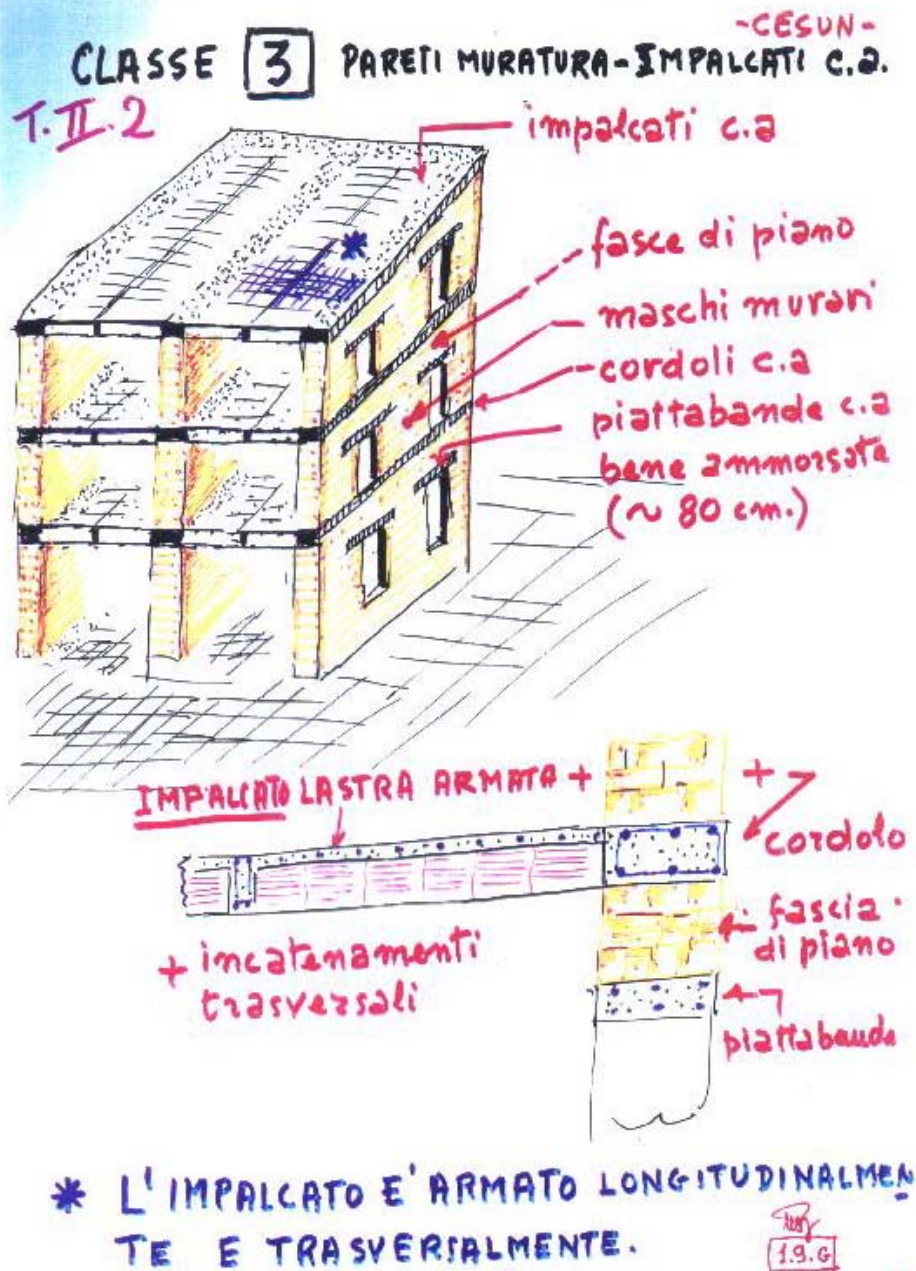 -CESUN-
CLASSE 3 PARETI MURATURA-IMPALCATI c.a.
T.II.2
impalcati c.a
fasce di piano
maschi murari
cordoli c.a
piattabande c.a
bene ammorsate
(~ 80 cm.)
IMPALCATO LASTRA ARMATA +
+
cordolo
fascia
di piano
+ incatenamenti
trasversali
piattabanda
* L'IMPALCATO E' ARMATO LONGITUDINALMEN
TE E TRASVERSALMENTE.
1.9.G